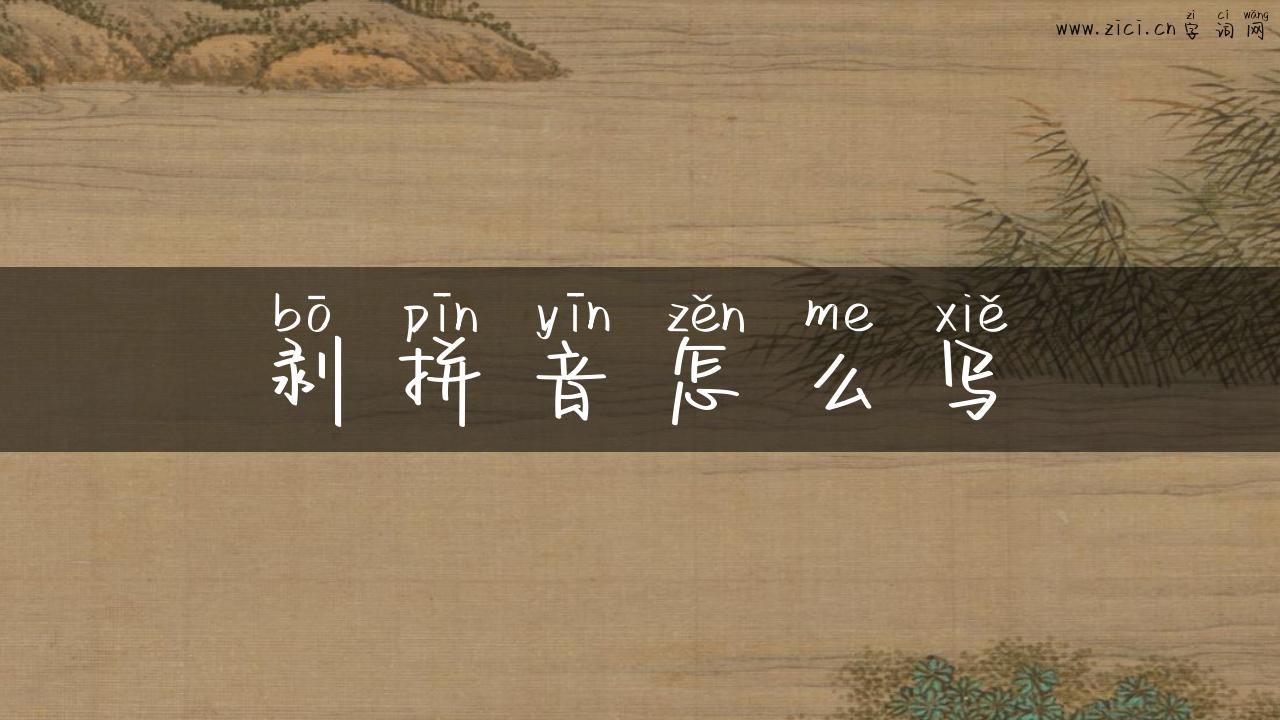 zì cí wǎng
www.zici.cn 字 词 网
bō pīn yīn zěn me xiě
剥 拼 音 怎 么 写